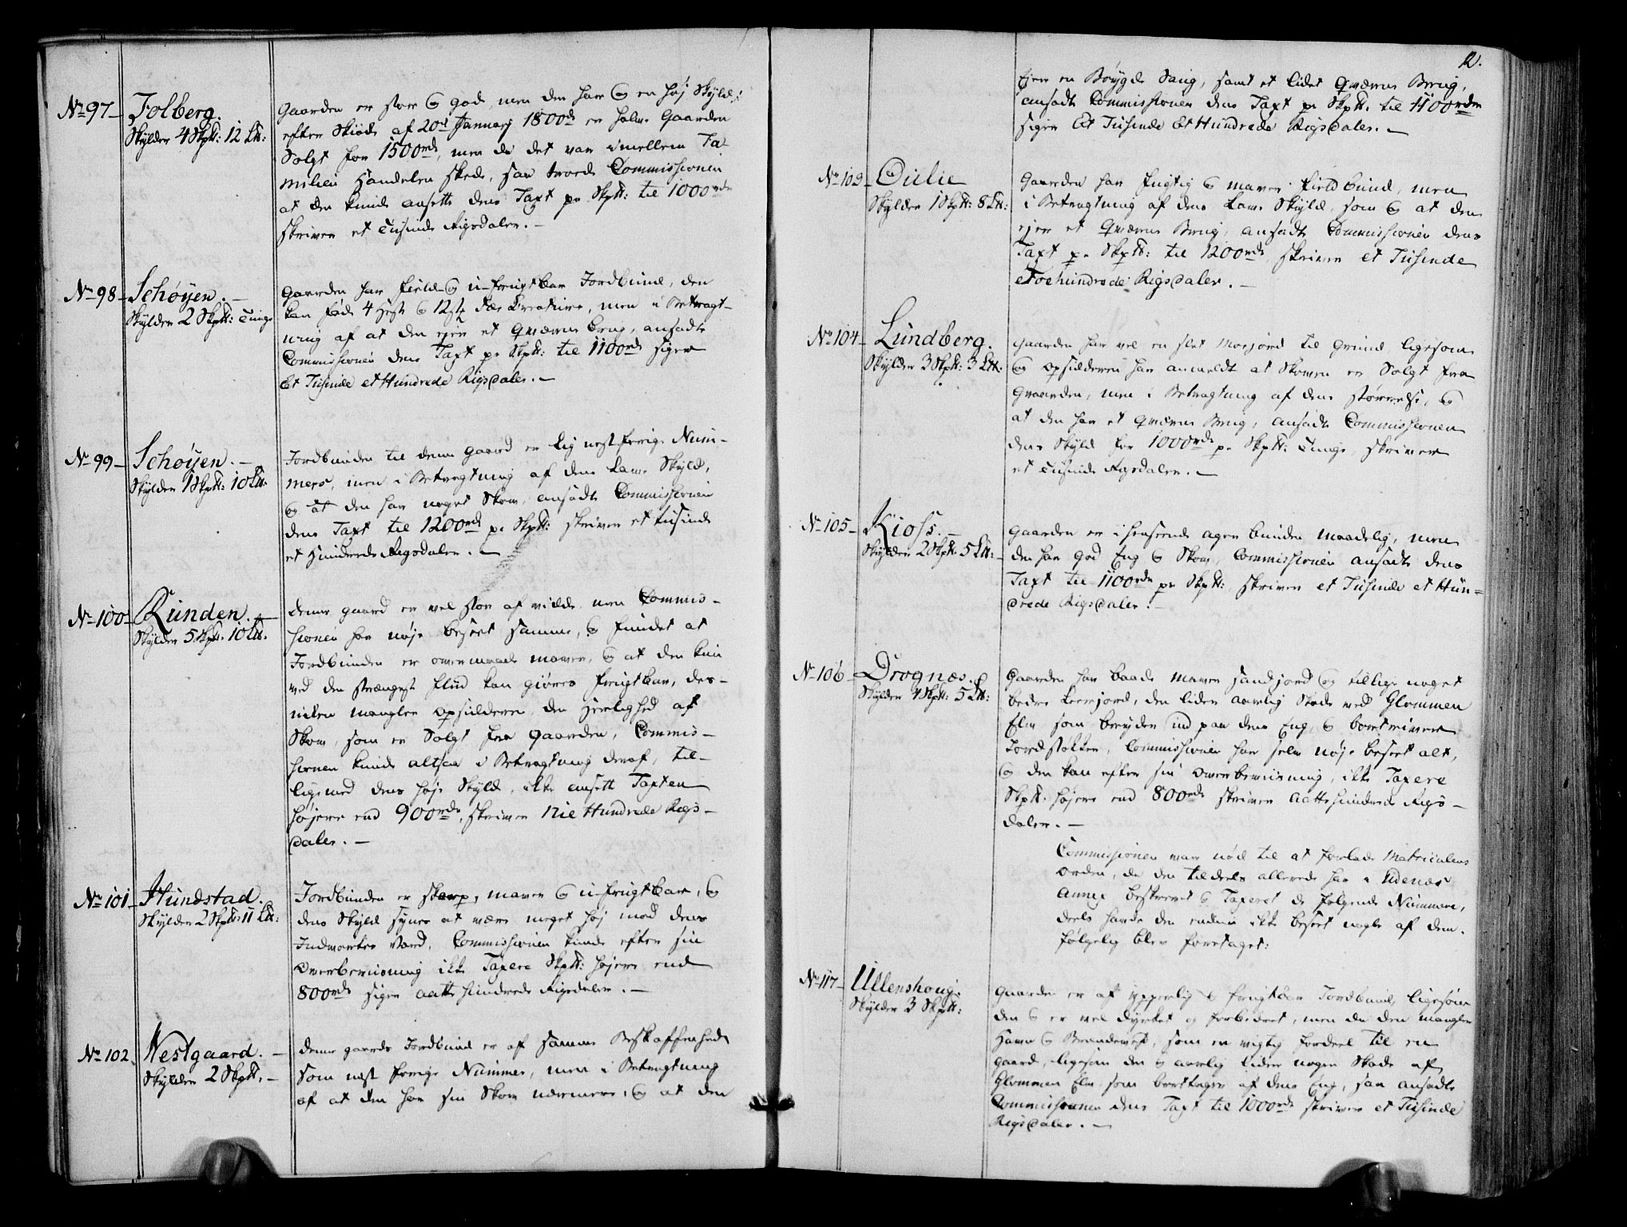 No 97 – Folberg.
Skylder 4 Skpd: 12 Lb:
Gaarden er stor og god, men den har og en høj Skyld;
efter Skiøde af 20de Januarj 1800de er halve Gaarden
Solgt for 1500rd, men da det var imellem Fa-
milien Handelen skede, saa troede Commissionen
at den kunde ansætte dens Taxt pr Skpd: til 1000rdr
skriver et Tusinde Rigsdaler. –
No 98 – Schøyen. –
Skylder 2 Skpd: Tunge
Gaarden har field og u-frugtbar Jordbund, den
kan føde 4 Hest og 12 st. Creature, men i Betragt-
ning af at den ejer et Qværne brug, ansadte
Commissionen dens Taxt pr Skpd: til 1100rd siger
Et Tusinde et Hundrede Rigsdaler. –
No 99 – Schøyen. –
Skylder 1 Skpd: 10 Lb:
Jordbunden til denne gaard er lig nestforrige Num-
mers, men i Betragtning af dens lave Skyld,
og at den har noget Skov, ansadte Commissionen
dens Taxt til 1200rd pr Skpd: skriver et tusinde
et Hunderede Rigsdaler. –
No 100 – Runden. –
Skylder 5 Skpd. 10 Lb.
denne gaard er vel stor af vidde men Commis-
sionen har nøje beseet samme, og fundet at
Jordbunden er overmaade maver, og at den kun
ved den strængest flid kan giøres frugtbar, des-
uden mangler opsidderen den Herlighed af
Skov, som er Solgt fra Gaarden, Commis-
sionen kunde altsaa i Betragtning deraf, til-
ligemed dens høje Skyld, ikke ansætt Taxten
højere end 900rdr, skriver Nie Hundrede Rigs-
daler. –
No 101 – Hundstad.
Skylder 2 Skpd: 11 Lb:
Jordbunden er skarp, maver og u-frugtbar, og
dens Skyld synes at være meget høj mod dens
Indvortes Værd, Commissionen kunde efter sin
Overbeviisning ikke Taxere Skpd: højere end
800rdr siger aatte hundrede Rigsdaler. –
No 102 – Westgaard. –
Skylder 2 Skpd. –
denne gaards Jordbund er af samme Beskaffenhed
som næst forrige Nummer, men i Betragtning
af at den har sin Skov nærmere, og at den
12.
Ejer en Bøygde Saug, samt et lidet Qværne Brug,
ansadte Commissionen dens Taxt pr Skpd: til 1100rdr
siger Et Tusinde Et Hundrede Rigsdaler. –
No 103 – Oulie
Skylder 1 Skpd: 8 Lb:
Gaarden har fugtig og maver field bund, men
i Betragtning af dens lave Skyld, som og at den
ejer et Qværne Brug, ansadte Commissionen dens
Taxt pr Skpd: til 1200rd skriver et Tusinde
et Toehundrede Rigsdaler. –
No 104 – Lundberg.
Skylder 3 Skpd: 3 Lb:
gaarden har vel en slet Moejord til Grund ligesom
og opsidderen har anmeldt at Skoven er Solgt fra
Gaarden, men i Betragtning af dens størrelse, og
at den har et Qværne Brug, ansadte Commissionen
dens Skyld for 1000rdr pr Skpd: Tunge, skriver
et Tusinde Rigsdaler. –
No 105 – Kioss. –
Skylder 2 Skpd. 5 Lb:
Gaarden er i henseende ager bunden maadelig, men
den har god Eng og Skov, Commissionen ansadte dens
Taxt til 1100rdr pr Skpd: skriver et Tusinde et Hun-
drede Rigsdaler. –
No 106 – Drognæs.
Skylder 4 Skpd: 5 Lb:
Gaarden har baade maver sandjord og tillige noget
bedre Leerjord, den lider aarlig Skade ved Glommen
Elv som bryder ind paa dens Eng og bortriver
Jordstøkker, Commissionen har selv nøje beseet alt,
og den kan efter sin Overbeviisning, ikke Taxere
Skpd: højere end 800rdr skriver aattehundrede Rigs-
daler. –
Commissionen var nød til at forlade Matriculens
Orden, da den tildeels allerede har i Udenæs
Annex beskrevet og Taxeret de følgende Nummere,
deels havde den endnu ikke beseet nogle af dem.
følgelig blev foretaget:
No 117 – Ullenshoug.
Skylder 3 Skpd:
Gaarden er af ypperlig og frugtbar Jordbund, ligesom
den og er vel dyrket og forbedret, men da den mangler
Havn og Brændeved, som en vigtig Fordeel til en
gaard, ligesom den og aarlig lider nogen Skade af
Glommen Elv som borttager af dens Eng, saa ansadte
Commissionen dens Taxt til 1000rd skriver et Tusinde
Rigsdaler. –